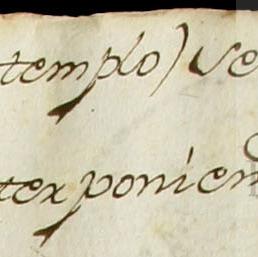 templo) se
tex ponien